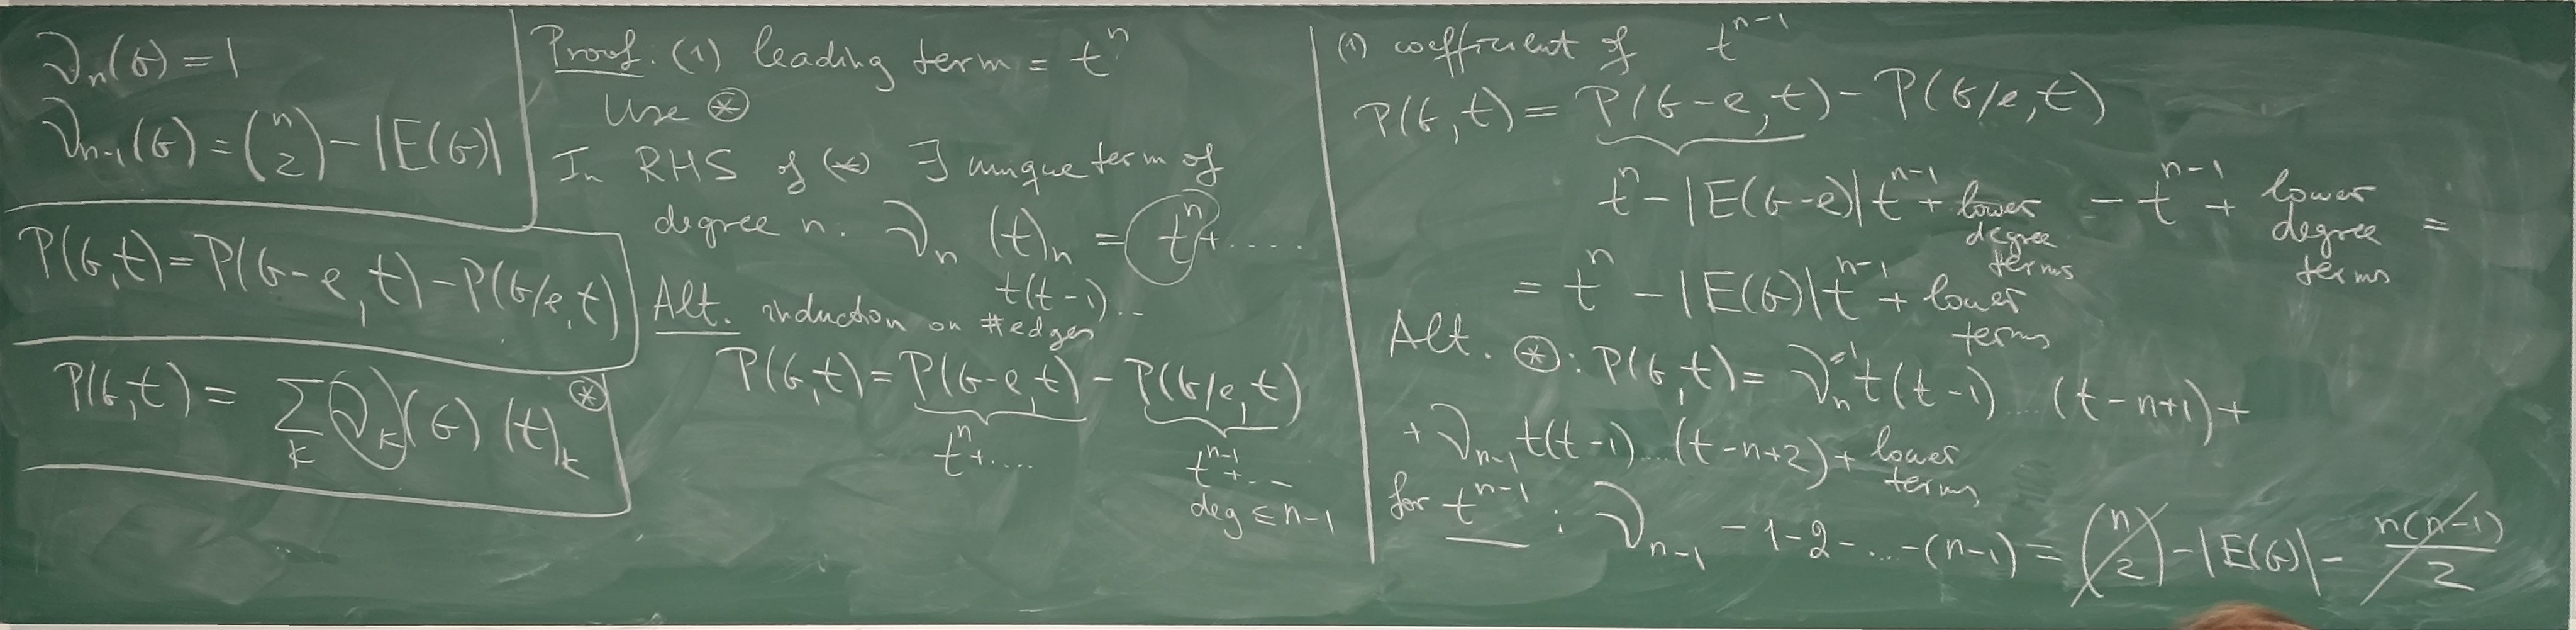 𝜈ₙ(G) = 1
𝜈ₙ₋₁(G) = (n 2) − |E(G)|
P(G,t) = P(G−e,t) − P(G/e,t)
P(G,t) = ∑ₖ 𝜈ₖ(G) (t)ₖ ⊛
Proof: (1) leading term = tⁿ?
Use ⊛
In RHS of (*) ∃ unique term of
degree n. 𝜈ₙ (t)ₙ = tⁿ + .....
t(t−1)...
Alt. induction on #edges
P(G,t) = P(G−e,t) − P(G/e,t)
tⁿ+.... tⁿ⁻¹+...
deg ≤ n−1
(1) coefficient of tⁿ⁻¹
P(G,t) = P(G−e,t) − P(G/e,t)
tⁿ − |E(G−e)|tⁿ⁻¹ + lower degree terms − tⁿ⁻¹ + lower degree terms =
= tⁿ − |E(G)|tⁿ⁻¹ + lower terms
Alt. ⊛: P(G,t) = 𝜈ₙ⁼¹ t(t−1)....(t−n+1) +
+ 𝜈ₙ₋₁ t(t−1)....(t−n+2) + lower terms
for tⁿ⁻¹ : 𝜈ₙ₋₁ −1−2−...−(n−1) = (n 2) − |E(G)| − n(n−1)/2